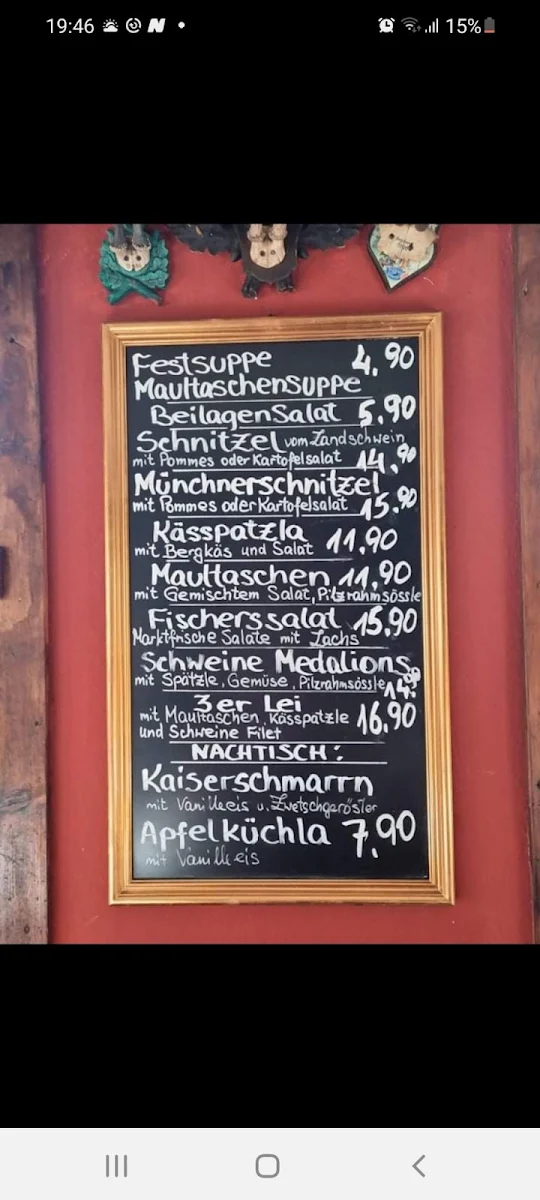 19:46
15%
Festsuppe 4,90
Maultaschensuppe
Beilagensalat 5,90
Schnitzel vom Landschwein
mit Pommes oder Kartofelsalat 14,90
Münchnerschnitzel
mit Pommes oder Kartofelsalat 15,90
Kässpatzla
mit Bergkäs und Salat 11,90
Maultaschen 11,90
mit Gemischtem Salat, Pilzrahmsössle
Fischerssalat 15,90
Marktfrische Salate mit Lachs
Schweine Medalions
mit Spätzle, Gemüse, Pilzrahmsössle 14,90
3er Lei
mit Maultaschen, Kässpatzle 16,90
und Schweine Filet
NACHTISCH:
Kaiserschmarrn
mit Vanilleeis u. Zwetschgeröster
Apfelküchla 7,90
mit Vanilleeis